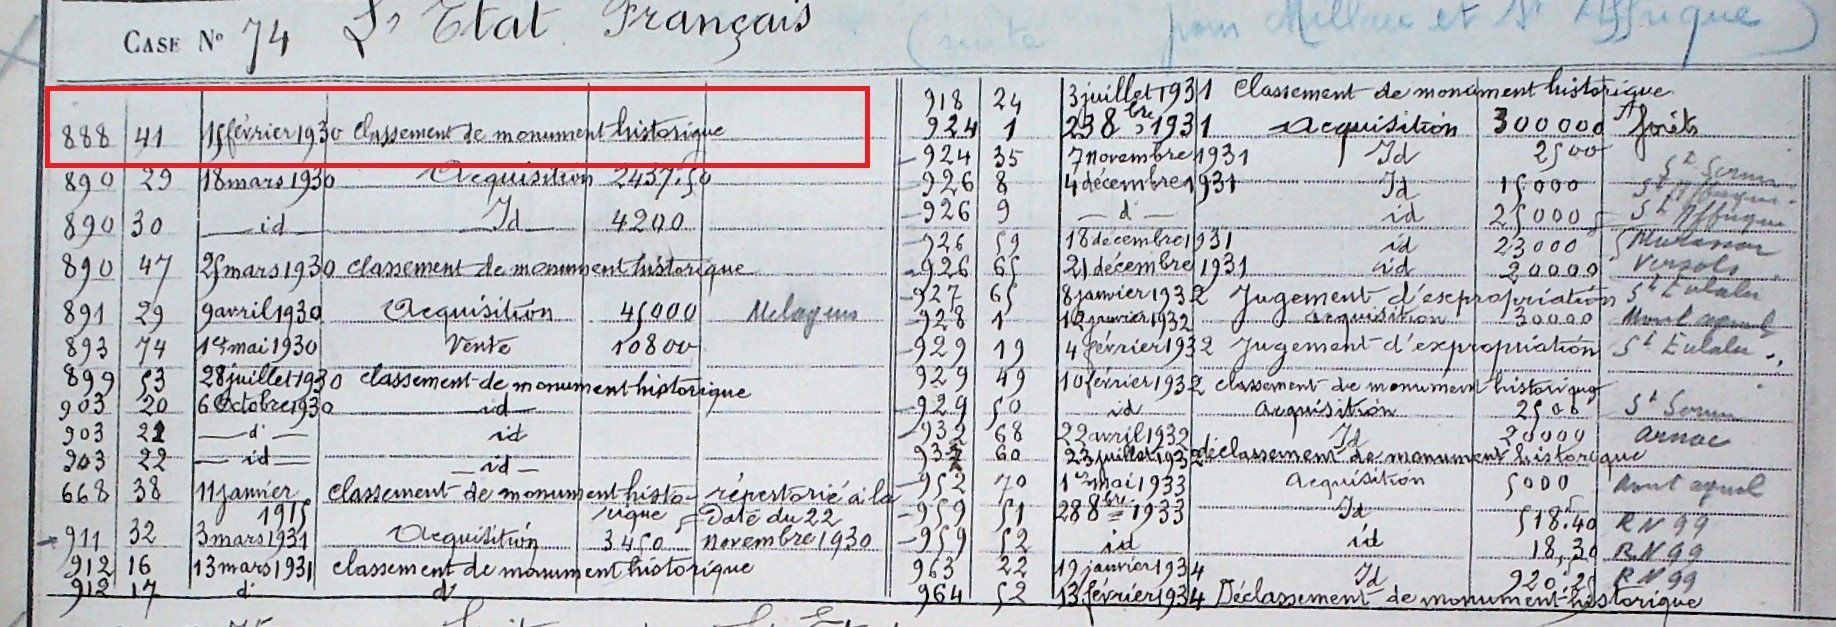 CASE N° 74 L'Etat Français (suite pour Millau et St Affrique)
888 41 15 février 1930 classement de monument historique
890 29 18 mars 1930 Acquisition 2437.50
890 30 — id — Id 4200
890 47 25 mars 1930 classement de monument historique
891 29 9 avril 1930 Acquisition 45000
893 74 1er mai 1930 Vente 10800
899 53 28 juillet 1930 classement de monument historique
903 20 6 Octobre 1930 — id —
903 21 — d° — id
903 22 — id — — id —
668 38 11 janvier classement de monument histo- répertorié à la
1915 rique = Date du 22
911 32 3 mars 1931 Acquisition 3450 novembre 1930
912 16 13 mars 1931 classement de monument historique
912 17 d° d°
918 24 3 juillet 1931 Classement de monument historique
924 1 23 8bre 1931 Acquisition 300000 forêts
924 35 7 novembre 1931 Id 2500
926 8 4 décembre 1931 Id 15000 St Sernin
926 9 — d° — id 25000 St Affrique
926 59 18 décembre 1931 id 23000
926 65 21 décembre 1931 id 20000 Versols
927 65 8 janvier 1932 Jugement d'expropriation St Eulalie
928 1 12 janvier 1932 acquisition 30000
929 19 4 février 1932 Jugement d'expropriation St Eulalie
929 49 10 février 1932 classement de monument historique
929 50 id acquisition 2500 St Sernin
932 68 22 avril 1932 Id 20000 Arnac
937 60 23 juillet 1932 déclassement de monument historique
952 70 1er mai 1933 acquisition 5000
959 51 28 8bre 1933 Id 518.40 R N 99
959 52 id id 18,30 R N 99
963 22 19 janvier 1934 Id 920.25 R N 99
964 52 13 février 1934 Déclassement de monument historique